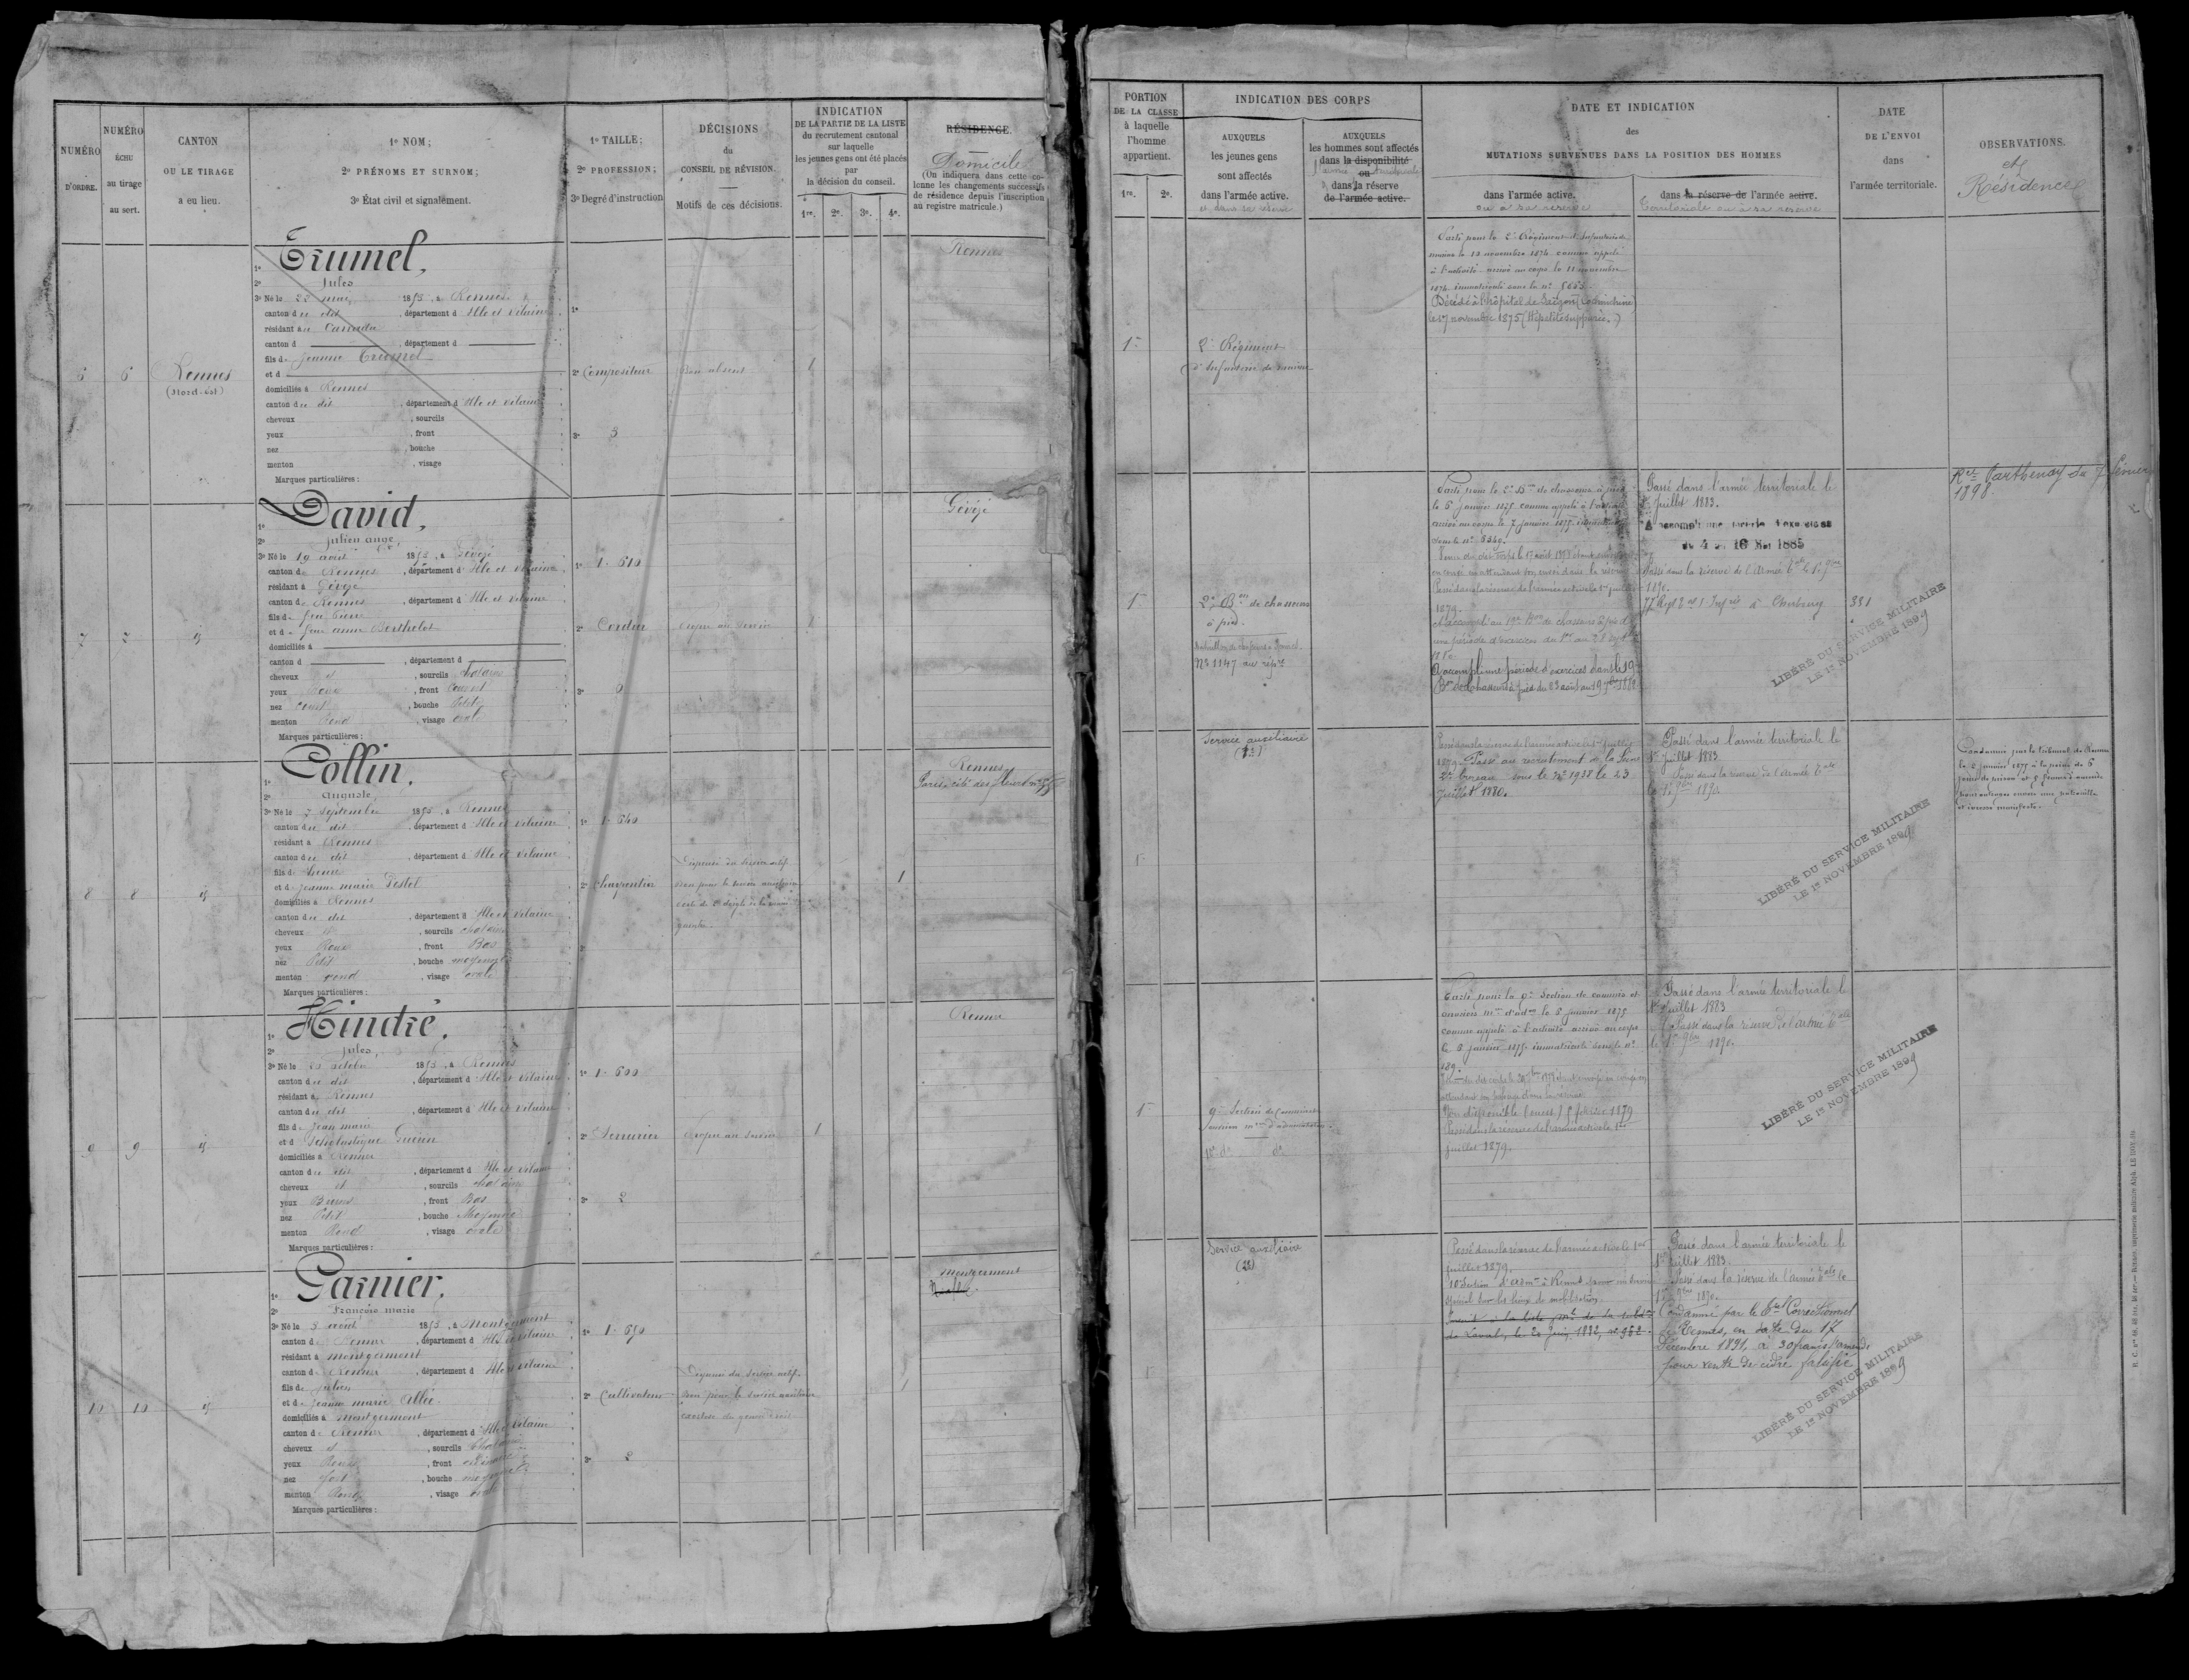 NUMÉRO
D'ORDRE.
NUMÉRO
ÉCHU
au tirage
au sort.
CANTON
OU LE TIRAGE
a eu lieu.
1º NOM;
2º PRÉNOMS ET SURNOM;
3º État civil et signalement.
1º TAILLE;
2º PROFESSION;
3º Degré d'instruction
DÉCISIONS
du
CONSEIL DE RÉVISION.
Motifs de ces décisions.
INDICATION
DE LA PARTIE DE LA LISTE
du recrutement cantonal
sur laquelle
les jeunes gens ont été placés
par
la décision du conseil.
1re. 2e. 3e. 4e.
RÉSIDENCE.
Domicile
(On indiquera dans cette co-
lonne les changements successifs
de résidence depuis l'inscription
au registre matricule.)
6 6 Rennes
(Nord-est)
1º Trumel,
2º Jules
3º Né le 23 mai 1853, à Rennes
canton du dit, département d'Ille et Vilaine
résidant au Canada
canton d, département d
fils de Jeanne Trumel
et d
domiciliés à Rennes
canton du dit, département d'Ille et Vilaine
cheveux, sourcils
yeux, front
nez, bouche
menton, visage
Marques particulières:
1º
2º Compositeur
3º 3
Bon absent
1
Rennes
7 7 id
1º David,
2º Julien ange,
3º Né le 19 août 1853, à Gévezé
canton de Rennes, département d'Ille et Vilaine
résidant à Gévezé
canton de Rennes, département d'Ille et Vilaine
fils de feu Pierre
et de feue anne Berthelot
domiciliés à
canton d, département d
cheveux et, sourcils châtains
yeux Roux, front Couvert
nez Court, bouche Petite
menton Rond, visage ovale
Marques particulières:
1º 1. 610
2º Cordier
3º 0
Propre au service
1
Gévezé
8 8 id
1º Collin,
2º Auguste,
3º Né le 7 Septembre 1853, à Rennes
canton du dit, département d'Ille et Vilaine
résidant à Rennes
canton du dit, département d'Ille et Vilaine
fils de
et de Jeanne marie Pestel
domiciliés à Rennes
canton du dit, département d'Ille et Vilaine
cheveux et, sourcils châtains
yeux Roux, front Bas
nez Petit, bouche moyenne
menton rond, visage ovale
Marques particulières:
1º 1. 640
2º Charpentier
3º
Dispensé du service actif.
Bon pour le service auxiliaire
perte de 2 doigts de la main
gauche.
1
Rennes
9 9 id
1º Hindré,
2º Jules,
3º Né le 20 octobre 1853, à Rennes
canton du dit, département d'Ille et Vilaine
résidant à Rennes
canton du dit, département d'Ille et Vilaine
fils de Jean marie
et d Scholastique Guérin
domiciliés à Rennes
canton du dit, département d'Ille et Vilaine
cheveux et, sourcils châtains
yeux Bruns, front Bas
nez Petit, bouche Moyenne
menton Rond, visage ovale
Marques particulières:
1º 1. 600
2º Serrurier
3º 2
Propre au service
1
Rennes
10 10 id
1º Garnier,
2º François marie
3º Né le 3 août 1853, à Montgermont
canton de Rennes, département d'Ille et Vilaine
résidant à montgermont
canton de Rennes, département d'Ille et Vilaine
fils de Julien
et de Jeanne marie Allée
domiciliés à montgermont
canton de Rennes, département d'Ille et Vilaine
cheveux et, sourcils Châtains
yeux Roux, front ordinaire
nez fort, bouche moyenne
menton Rond, visage ovale
Marques particulières:
1º 1. 650
2º Cultivateur
3º 2
Dispensé du service actif.
Bon pour le service auxiliaire
1
montgermont
PORTION
DE LA CLASSE
à laquelle
l'homme
appartient.
1re. 2e.
INDICATION DES CORPS
AUXQUELS
les jeunes gens
sont affectés
dans l'armée active.
et dans sa réserve
AUXQUELS
les hommes sont affectés
dans la disponibilité
ou
dans la réserve
de l'armée active.
DATE ET INDICATION
des
MUTATIONS SURVENUES DANS LA POSITION DES HOMMES
dans l'armée active.
ou à sa réserve
dans la réserve de l'armée active.
Territoriale ou à sa réserve
DATE
DE L'ENVOI
dans
l'armée territoriale.
OBSERVATIONS.
et
Résidences
1re
2e Régiment
d'Infanterie de marine
Parti pour le 2e Régiment d'Infanterie de
marine le 10 novembre 1874 comme appelé
à l'activité - arrivé au corps le 11 novembre
1874 immatriculé sous le nº 8663.
Décédé à l'hôpital de Saïgon (Cochinchine)
le 27 novembre 1875 (Hépatite suppurée.)
1re
2e Bon de chasseurs
à pied.
Nº 1147 au rép.re
Parti pour le 2e Bon de chasseurs à pied
le 6 janvier 1875 comme appelé à l'activité
arrivé au corps le 7 janvier 1875 immatriculé
sous le nº 3549.
Passé dans la réserve de l'armée active le 1er juillet
1879.
A accompli au 19e Bon de chasseurs à pied
une période d'exercices du
A accompli une période d'exercices dans le 19e
Bon de Chasseurs à pied du 23 août au 19 7bre 1882
Passé dans l'armée territoriale le
1er Juillet 1883.
A accompli une période d'exercices
du 4 au 16 Mai 1885
Passé dans la réserve de l'Armée tale le 1er 9bre
1890.
77e Régt à Cherbourg
331
Rce Parthenay du 7 février
1898.
LIBÉRÉ DU SERVICE MILITAIRE
LE 1er NOVEMBRE 1899
1re
Service auxiliaire
Passé dans la réserve de l'armée active le 1er juillet
1879. Passé au recrutement de la Seine
2e bureau sous le nº 1938 le 23
Juillet 1880.
Passé dans l'armée territoriale le
1er juillet 1883
Passé dans la réserve de l'Armée tale
le 1er 9bre 1890.
Condamné par le tribunal de Rennes
le 2 janvier 1875 à la peine de 6
jours de prison et 5 francs d'amende
pour outrages envers une patrouille
et ivresse manifeste.
LIBÉRÉ DU SERVICE MILITAIRE
LE 1er NOVEMBRE 1899
1re
9e Section de Commis et
ouvriers mres d'administration
Parti pour la 9e Section de commis et
ouvriers mres d'adon le 5 janvier 1875
comme appelé à l'activité arrivé au corps
le 6 janvier 1875 immatriculé sous le nº
189.
Non disponible (ouest) 5 février 1879
Passé dans la réserve de l'armée active le 1er
juillet 1879.
Passé dans l'armée territoriale le
1er Juillet 1883
Passé dans la réserve de l'Armée tale
le 1er 9bre 1890.
LIBÉRÉ DU SERVICE MILITAIRE
LE 1er NOVEMBRE 1899
Service auxiliaire
(28)
Passé dans la réserve de l'armée active le 1er
juillet 1879.
10e Section d'admon à Rennes pour un service
spécial sur les lieux de mobilisation.
de Laval, le 20 juin 1882, nº 962.
Passé dans l'armée territoriale le
1er juillet 1883.
Passé dans la réserve de l'armée tale le
1er 9bre 1890.
Condamné par le tal Correctionnel
de Rennes, en date du 17
Décembre 1891, à 30 francs d'amende
pour vente de cidre falsifié
LIBÉRÉ DU SERVICE MILITAIRE
LE 1er NOVEMBRE 1899